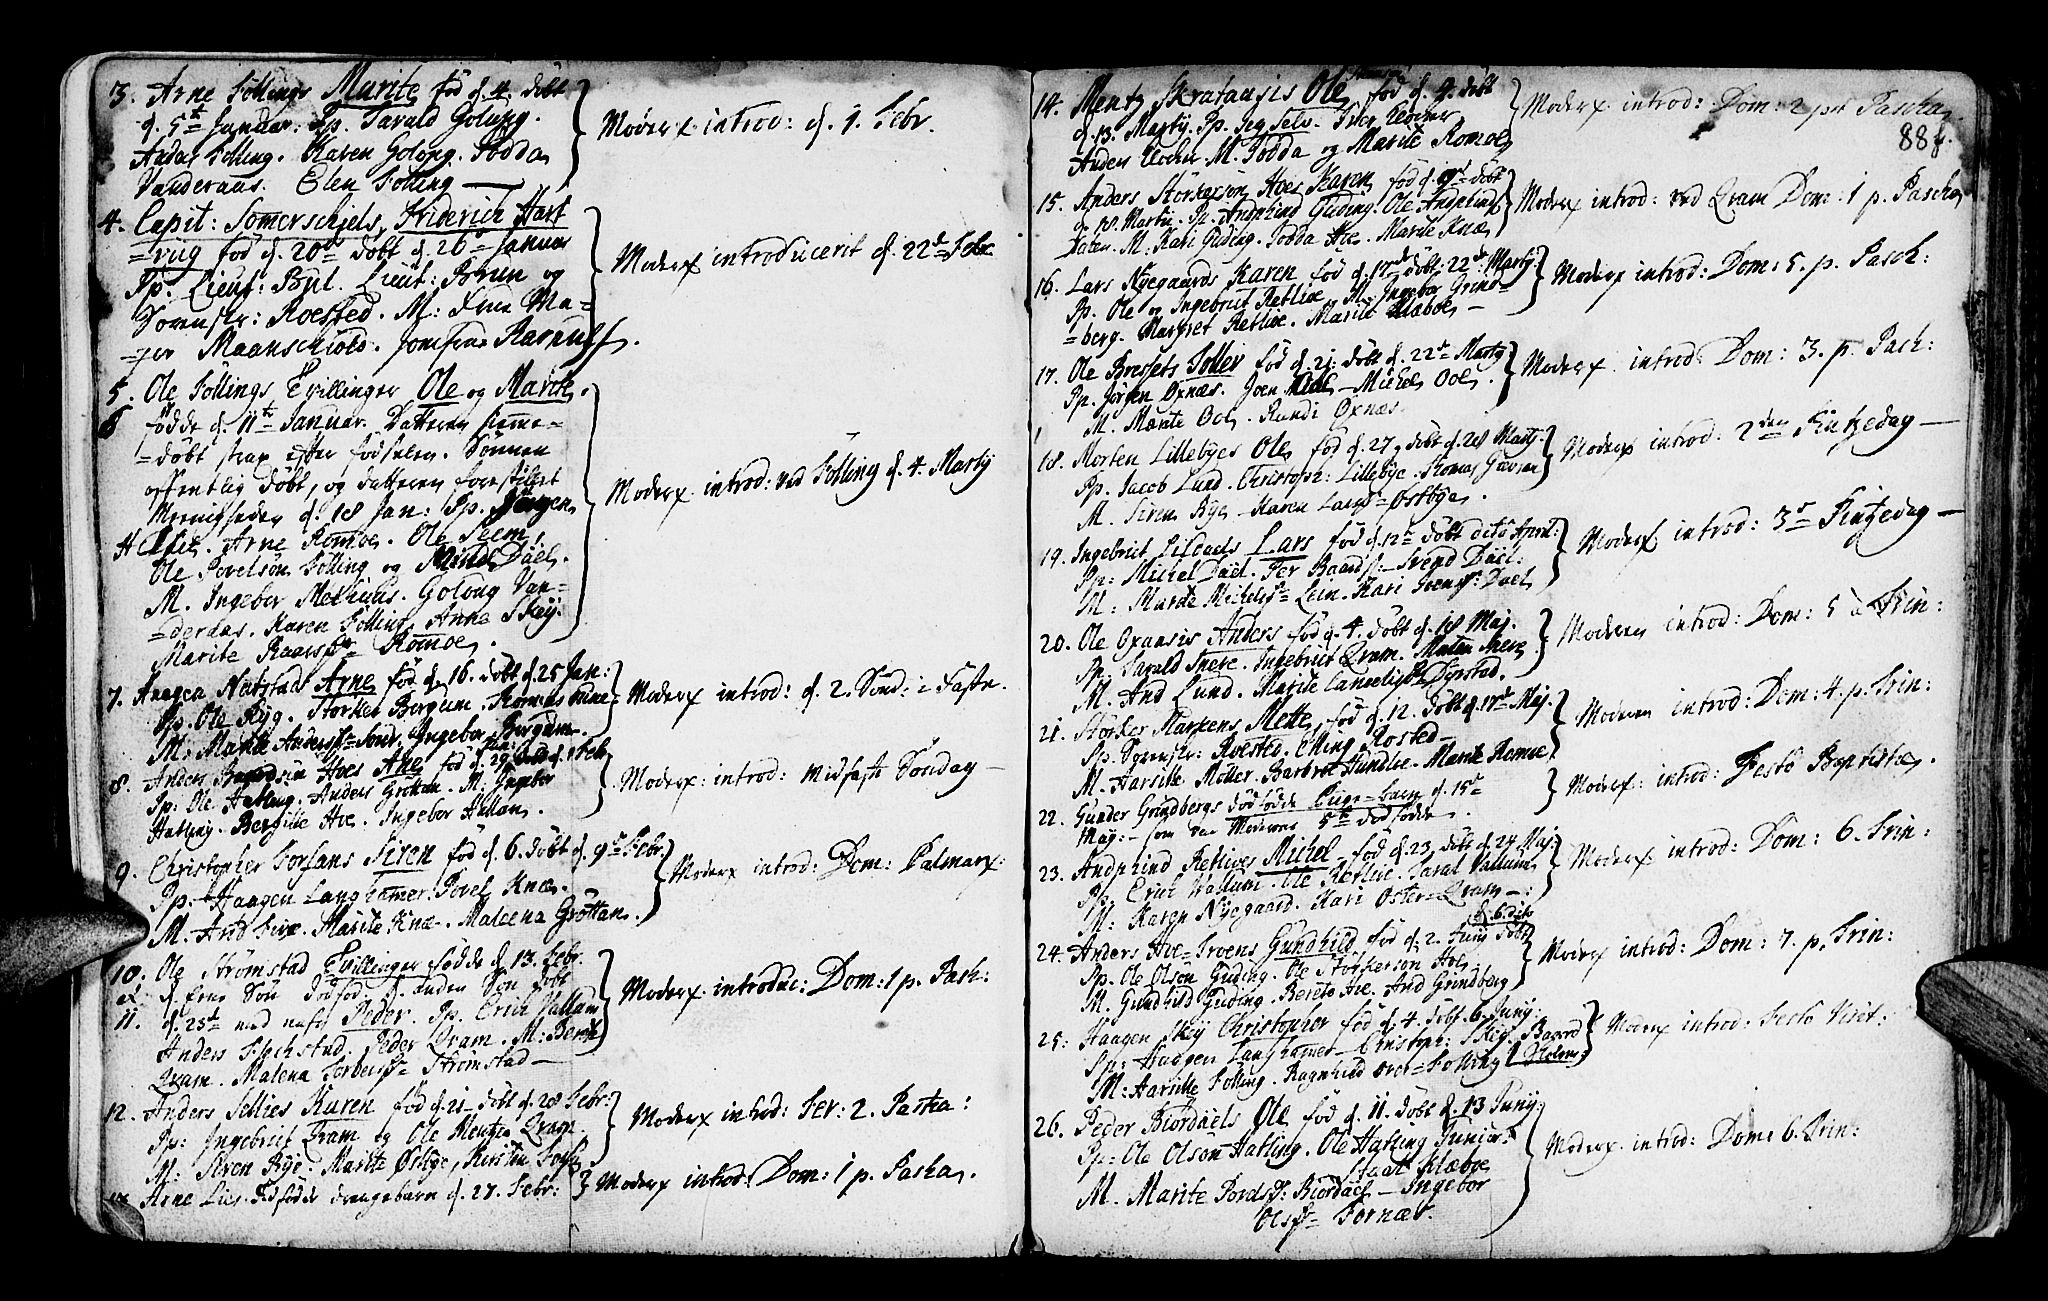 3. Arne Follings Marite fød d. 4. døbt
d. 5te Januar: Pp. Tarald Golung.
Anders Folling. Karen Golong. Todda
Vanderaas. Elen Folling —
Moderx introd: d. 1. Febr.
4. Capit: Somerschjels, Friderich Hart
=vug fød d. 20de døbt d. 26de Januar
Pp: Lieut: Byl. Lieut: Brun og
Sorenskr: Roested. M: Frue Ma=
=jer Maanschiold. Jomfrue
Moderx introducerit d. 22de Febr
5. Ole Føllings Tvillinger Ole og Marite
6 fødde d. 11te Januar. Datteren hieme=
=døbt strax efter fødselen. Sønnen
offentlig døbt, og datteren forestillet
Meenigheden d. 18 Jan: Pp. Jørgen
Arne Romoe. Ole Seem.
Ole Povelsøn Folling og Dael.
M. Ingebor . Golaug Van=
=deraas. Karen Følling. Anna Skey:
Marite Romoe.
Moderx introd: ved Følling d. 4. Martij
7. Haagen Neitstad Arne fød d. 16. døbt d. 25 Jan:
Pp. Ole Ryg. Storker Bergum. Tomas
M: Marite Andersdr . Ingebor Bergum.
Moderx introd: d. 2. Sønd: i Faste.
8. Anders Baardsøn Hoes Ane fød d. 29 d. 1 Febr
Pp: Ole Hatling. Anders Grøttan. M: Ingebor
Hatling. Hoe. Ingebor Hallan.
Moderx: introd: Midfaste Sønday —
9. Christopher Forsans Siren fød d. 6. døbt d. 9de Febr.
Pp: Haagen Langhamer. Povel Knæ.
M. And . Marite Knæ. Maleena Grøttan.
Moderx introd: Dom: Palmarx:
10. Ole Strømstad Tvillinger fødde d. 13. Febr.
et d. Ene Søn dødfød. d. anden Søn døbt
11. d. 25de med nafn Peder. Pp. Erich Vallum
Anders . Peder Qvam. M: Berit
Qvam. Malena Strømstad —
Moderx: introduc: Dom: 1 p. Pash:
12. Anders Sellies Karen fød d. 21. døbt d. 28 Febr:
Pp: Ingebrict Qvam og Ole Mentzen Qvam.
M: Siren Rye. Marite Østbye. Kirsten
Moderx introd: Fer: 2. Pasha:
13 Arne Lies dødfødde drengebarn d. 27. Febr:
Moderx introd: Dom: 1 p. Pasha.
88
14. Mentz Skratansis Ole fød d. 9. døbt
d. 13. Martij. Pp. Jeg Selv.
Anders . M. Todda og Marite Romoe
Moderx introd: Dom: 2 pst Pasha
15. Anders Størkersøn Hoes Karen fød d. døbt
d. 18. Martii. Pp. Andphind Guding. Ole Andphind
M: Kari Guding. Todda Hoe. Marite Knæ
Moderx introd: ved Qvam Dom: 1 p. Pasha
16. Lars Nyegaards Karen fød d. 17de døbt 22de Martij
Pp. Ole og Ingebrict Retlie. M: Ingebor Grind=
=berg. Margret Retlie. Marite Klæboe —
Moderx introd: Dom: 5. p. Pasch:
17. Ole Bressets Toller fød d. 21. døbt d. 22de Martij
Pp. Jørgen Oxnæs. Joen — Michel Ooe.
M. Marite Ooe. Randi Oxnæs.
Moderx introd. Dom: 3. p. Pash:
18. Morten Lillebyes Ole fød d. 27. døbt d. 28 Martj:
Pp. Jacob Lund. Christoph: Lillebye. Tomas
M. Siren Rye — Karen Østbye.
Moderx introd: 2den Pintzedag —
19. Ingebrict Lars fød d. 12te døbt dito April:
Pp: Michel Dael. Per Baards: Svend Dael:
M: Marite Michelsdr Lein. Kari Dael
Moderx introd: 3de Pintzedag —
20. Ole Oxansis Anders fød d. 4. døbt d. 18 Maj.
Pp. Tarald Snere. Ingebrict Qvam. Snere
M. And Lund. Marite Dyrstad.
Moderen introd: Dom: 5 a Trin:
21. Størker Mette, fød d. 12. døbt d. 17de Maj.
Pp. Sorenskr: Roested. Elling Rosted —
M. Marite Møller. Barbro Marite Romoe
Moderen introd: Dom: 4. p. Trin:
22. Gunder Grindbergs dødfødde Pige=barn d. 15de
Maij — som var Moderens 5te dødfødde.
Moderx: introd: Festo Baptistæ.
23. Andphind Retlies Michel fød d. 23 døbt d. 24 Maj:
Pp. Erich Wallum. Ole Retlie. Taral Vallum
M: Karen Nyegaard. Kari Oster=Qvam —:
Moderx introd: Dom: 6. Trin:
24. Anders Hoe=Troens Gundhild fød d: 2. Junij døbt
d. 6 dito
Pp. Ole Olsøn Guding. Ole Størkersøn Hoe.
M. Gundhild Guding. Berete Hoe. And Grindberg
Moderx introd: Dom: 7. p. Trin:
25. Haagen Skey Christopher fød d. 4. døbt 6. Junij:
Pp: Haagen Langhamer — Christoph: Skey. Baard
M: Marite Folling. Ragnhild over=Folling
Moderx introd: Festo Visit:
26. Peder Biørdaels Ole fød d. 11. døbt d. 13 Junij:
Pp: Ole Olsøn Hatling. Ole Hatling Junior:
Klæboe
M. Marite Biørdael — Ingebor
Olsdr= Fornæs.
Moderx. introd: Dom: 6. Trin: